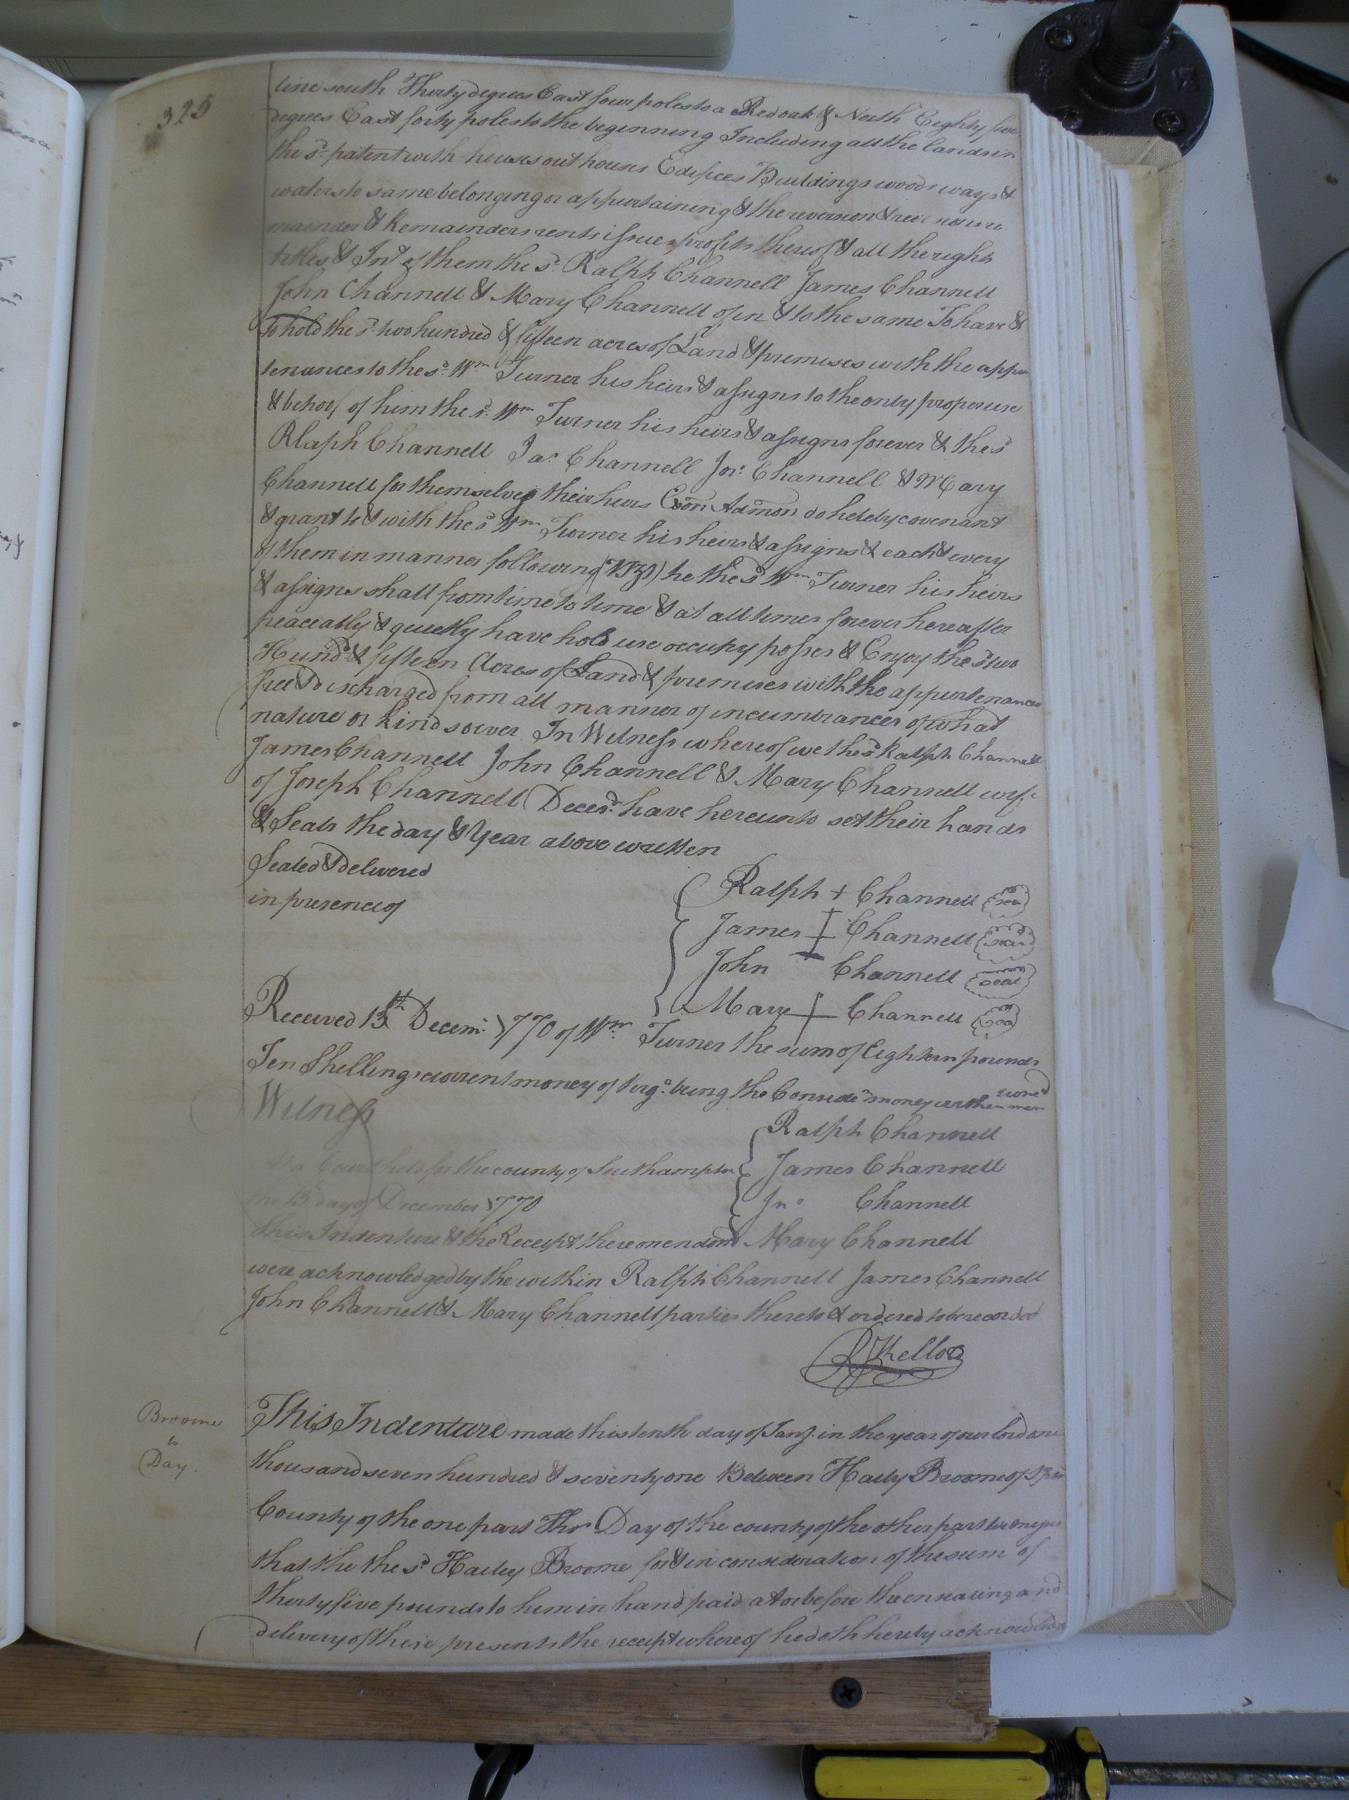 325
line south Thirty degrees East four poles to a Red oak & North Eighty five
degrees East forty poles to the beginning Including all the lands in
the sd. patent with houses out houses Edifices Buildings woods ways &
waters to same belonging or appertaining & the reversion &
mainder & Remainders rents issues profits thereof & all the right
titles & Int. of them the sd. Ralph Channell James Channell
John Channell & Mary Channell of in & to the same To have &
to hold the sd. two hundred & fifteen acres of Land & premises with the appur
tenances to the sd. Wm. Turner his heirs & assigns to the only proper use
& behoof of him the sd. Wm. Turner his heirs & assigns forever & the sd
Rlaph Channell Jas. Channell Jno. Channell & Mary
Channell for themselves their heirs Exors Admors do hereby covenant
& grant to & with the sd. Wm. Turner his heirs & assigns & each & every
of them in manner following (Vizt) he the sd. Wm. Turner his heirs
& assigns shall from time to time & at all times forever hereafter
peaceably & quietly have hold use occupy posses & Enjoy the sd. two
Hund. & fifteen Acres of Land & premises with the appurtenances
free & discharged from all manner of incumbrances of what
nature or kind soever In Witness whereof we the sd. Ralph Channell
James Channell John Channell & Mary Channell wife
of Joseph Channell Decesd. have hereunto set their hands
& Seals the day & Year above written
Sealed & delivered
in presence of
Ralph + Channell Seal
James + Channell Seal
John Channell Seal
Mary + Channell Seal
Received 13th Decem. 1770 of Wm. Turner the sum of Eighteen pounds
Ten Shillings current money of Virga. being the Conside. money within men
tioned
Witness
Ralph Channell
James Channell
Jno. Channell
Mary Channell
At a Court held for the county of Southampton
the 13 day of December 1770
this Indenture & the Receipt thereon endors'd
were acknowledged by the within Ralph Channell James Channell
John Channell & Mary Channell parties thereto & ordered to be recorded
R Kello
Broome
to
Day.
This Indenture made this tenth day of Jany. in the year of our lord one
thousand seven hundred & seventy one Between Haily Broome of
County of the one part Thos Day of the county of the other part
that the the sd. Hailey Broome for & in consideration of the sum of
thirty five pounds to him in hand paid at or before the ensealing and
delivery of these presents the receipt whereof he doth hereby acknowledge